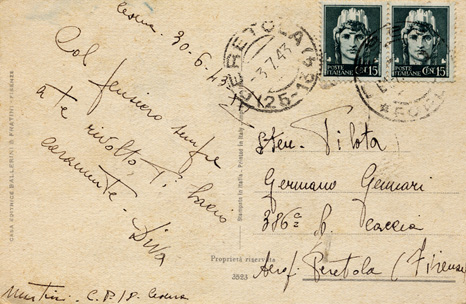 Cesena, 30-6-43
Col pensiero sempre
a te rivolto, Ti bacio
caramente - Diva
Martini - C.P. 18 Cesena
CASA EDITRICE BALLERINI & FRATINI - FIRENZE
Stampata in Italia - Printed in Italy
Proprietà riservata
3523
PERETOLA
3.7.43
POSTE ITALIANE
CENT 15
POSTE ITALIANE
CENT 15
Serg. Pilota
Germano Gennari
386ª S. Caccia
Aerop. Peretola (Firenze